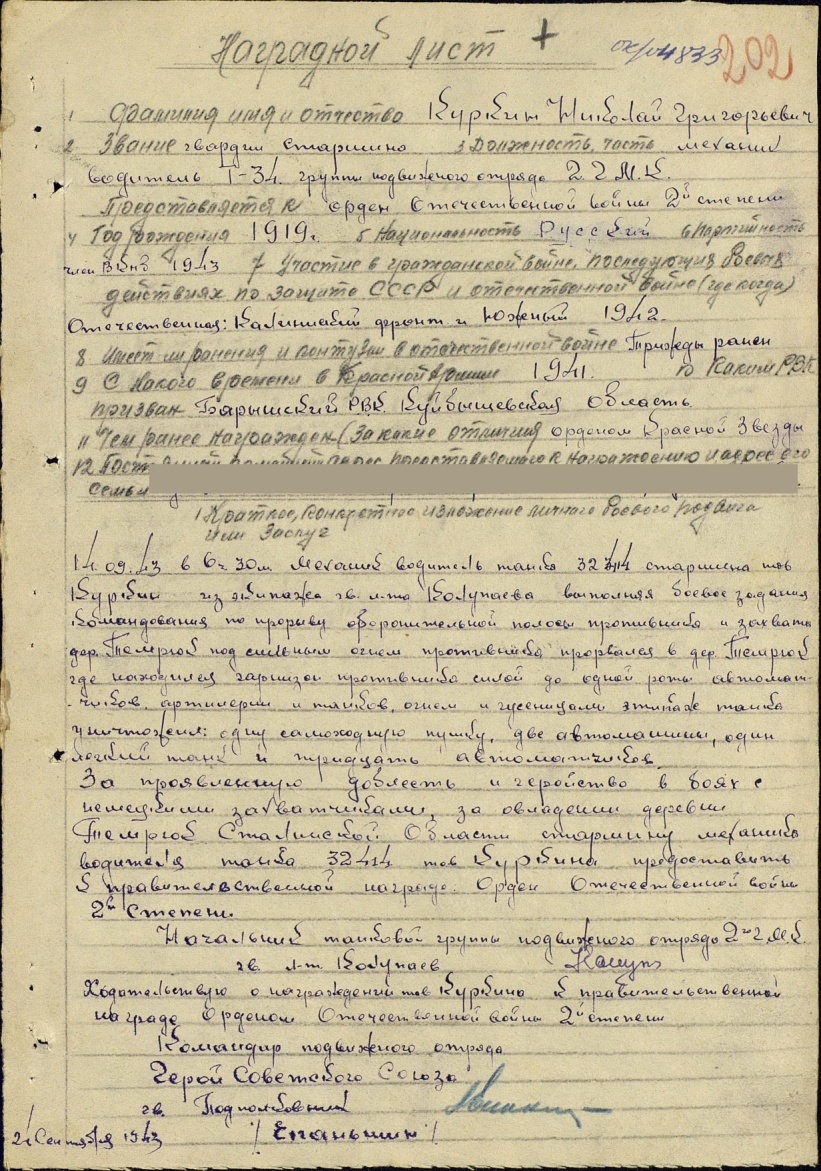 Наградной лист +
202
1 Фамилия имя и отчество Куркин Николай Григорьевич
2 Звание гвардии старшина 3 Должность, часть механик
водитель Т-34. группы подвижного отряда 2 Г.М.К.
Представляется к орден Отечественной войны 2й степени
4 Год рождения 1919г. 5 Национальность Русский 6 Партийность
член ВКПБ 1943 7 Участие в гражданской войне, последующих боевых
действиях по защите СССР и отечественной войне (где когда)
Отечественная: Калининский фронт и Южный 1942.
8 Имеет ли ранения и контузии в отечественной войне Трижды ранен
9 С какого времени в Красной Армии 1941. 10 Каким РВК
призван Барышский РВК Куйбышевская область
11 Чем ранее награжден (за какие отличия орденом Красной Звезды
12 представляемого к награждению и адрес его
семьи
Краткое, конкретное изложение личного боевого подвига
или заслуг
14.09.43 в 6ч 30м. Механик водитель танка старшина тов
Куркин из экипажа гв. л-та Колупаева выполняя боевое задания
командования по прорыву оборонительной полосы противника и захвата
дер. Темрюк под сильным огнем противника прорвался в дер Темрюк
где находился гарнизон противника силой до одной роты автомат-
-чиков, артилерии и танков, огнем и гусеницами экипаж танка
уничтожил: одну самоходную пушку, две автомашины, один
легкий танк и тридцать автоматчиков.
За проявленную доблесть и геройство в боях с
немецкими захватчиками, за овладении деревни
Темрюк Сталинской Области старшину механика
водителя танка 32414 тов Куркина предоставить
к правительственной награде. Орден Отечественной войны
2й степени
Начальник танковой группы подвижного отряда 2го Г.М.К.
гв. л-т. Колупаев
Ходательствую о награждений тов Куркина к правительственной
награде Орденом Отечественной войны 2й степени
Командир подвижного отряда
Герой Советского Союза
гв. Подполковник
сентября 1943 / Епаньшин /